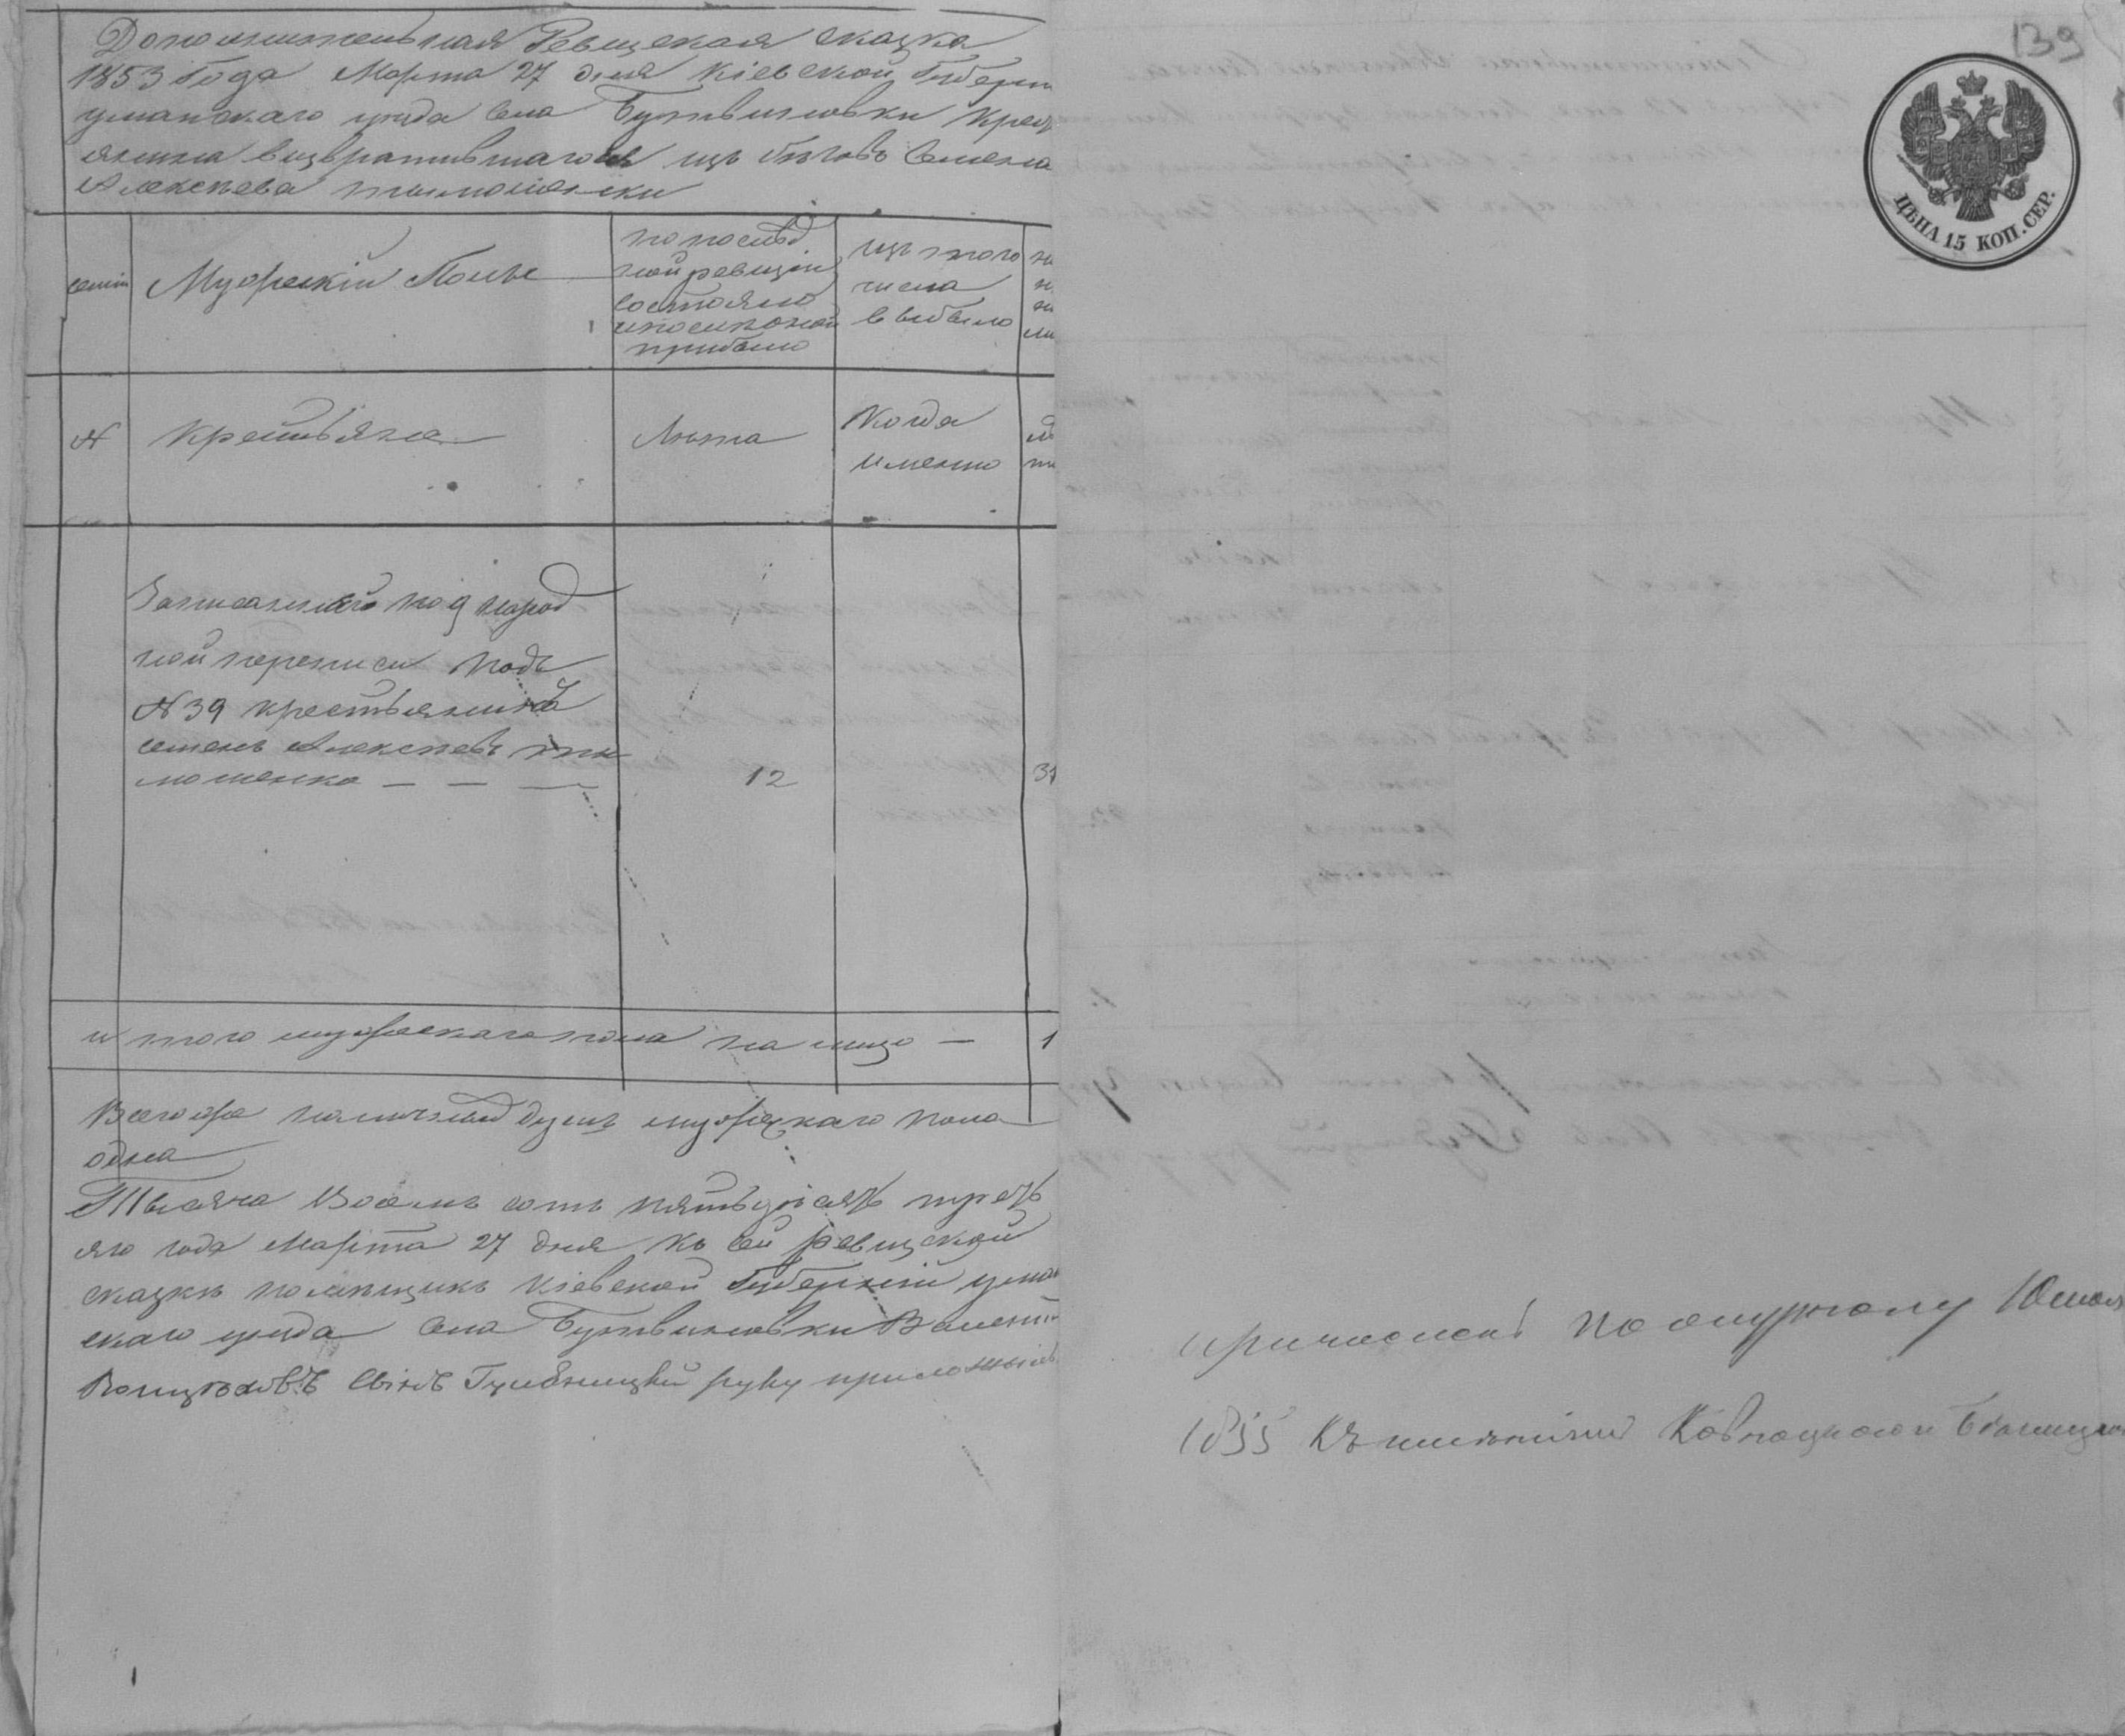 Дополнительная Ревизская сказка
1853 Года Марта 27 дня Кіевской Губерн
уманскаго уезда Села Бутвиновки Крест
янина възвратившагося изъ беговъ Семена
Алексеева тимошенки
семьи
Мужескій Полъ
по послед
ней ревизіи
состояло
и после оной
прибыло
изъ того
числа
выбыло
№
Крестьяне
Лета
Когда
именно
Записанный по 9 народ
ной переписи подъ
№ 39 крестьянинъ
семенъ Алексеевъ ти
мошенко — — —
12
31
и того мужескаго пола на лицо — 1
Всего же наличныхъ душъ мужескаго пола
одна
Тысяча Восемь сотъ пятьдісятъ треть
яго года Марта 27 дня къ сей ревизской
сказке помещикъ Кіевской Губерніи уман
скаго уезда Села Бутвиновки
Сынъ руку приложилъ
139
ЦѢНА 15 КОП. СЕР.
причисленъ по
1855 Къ